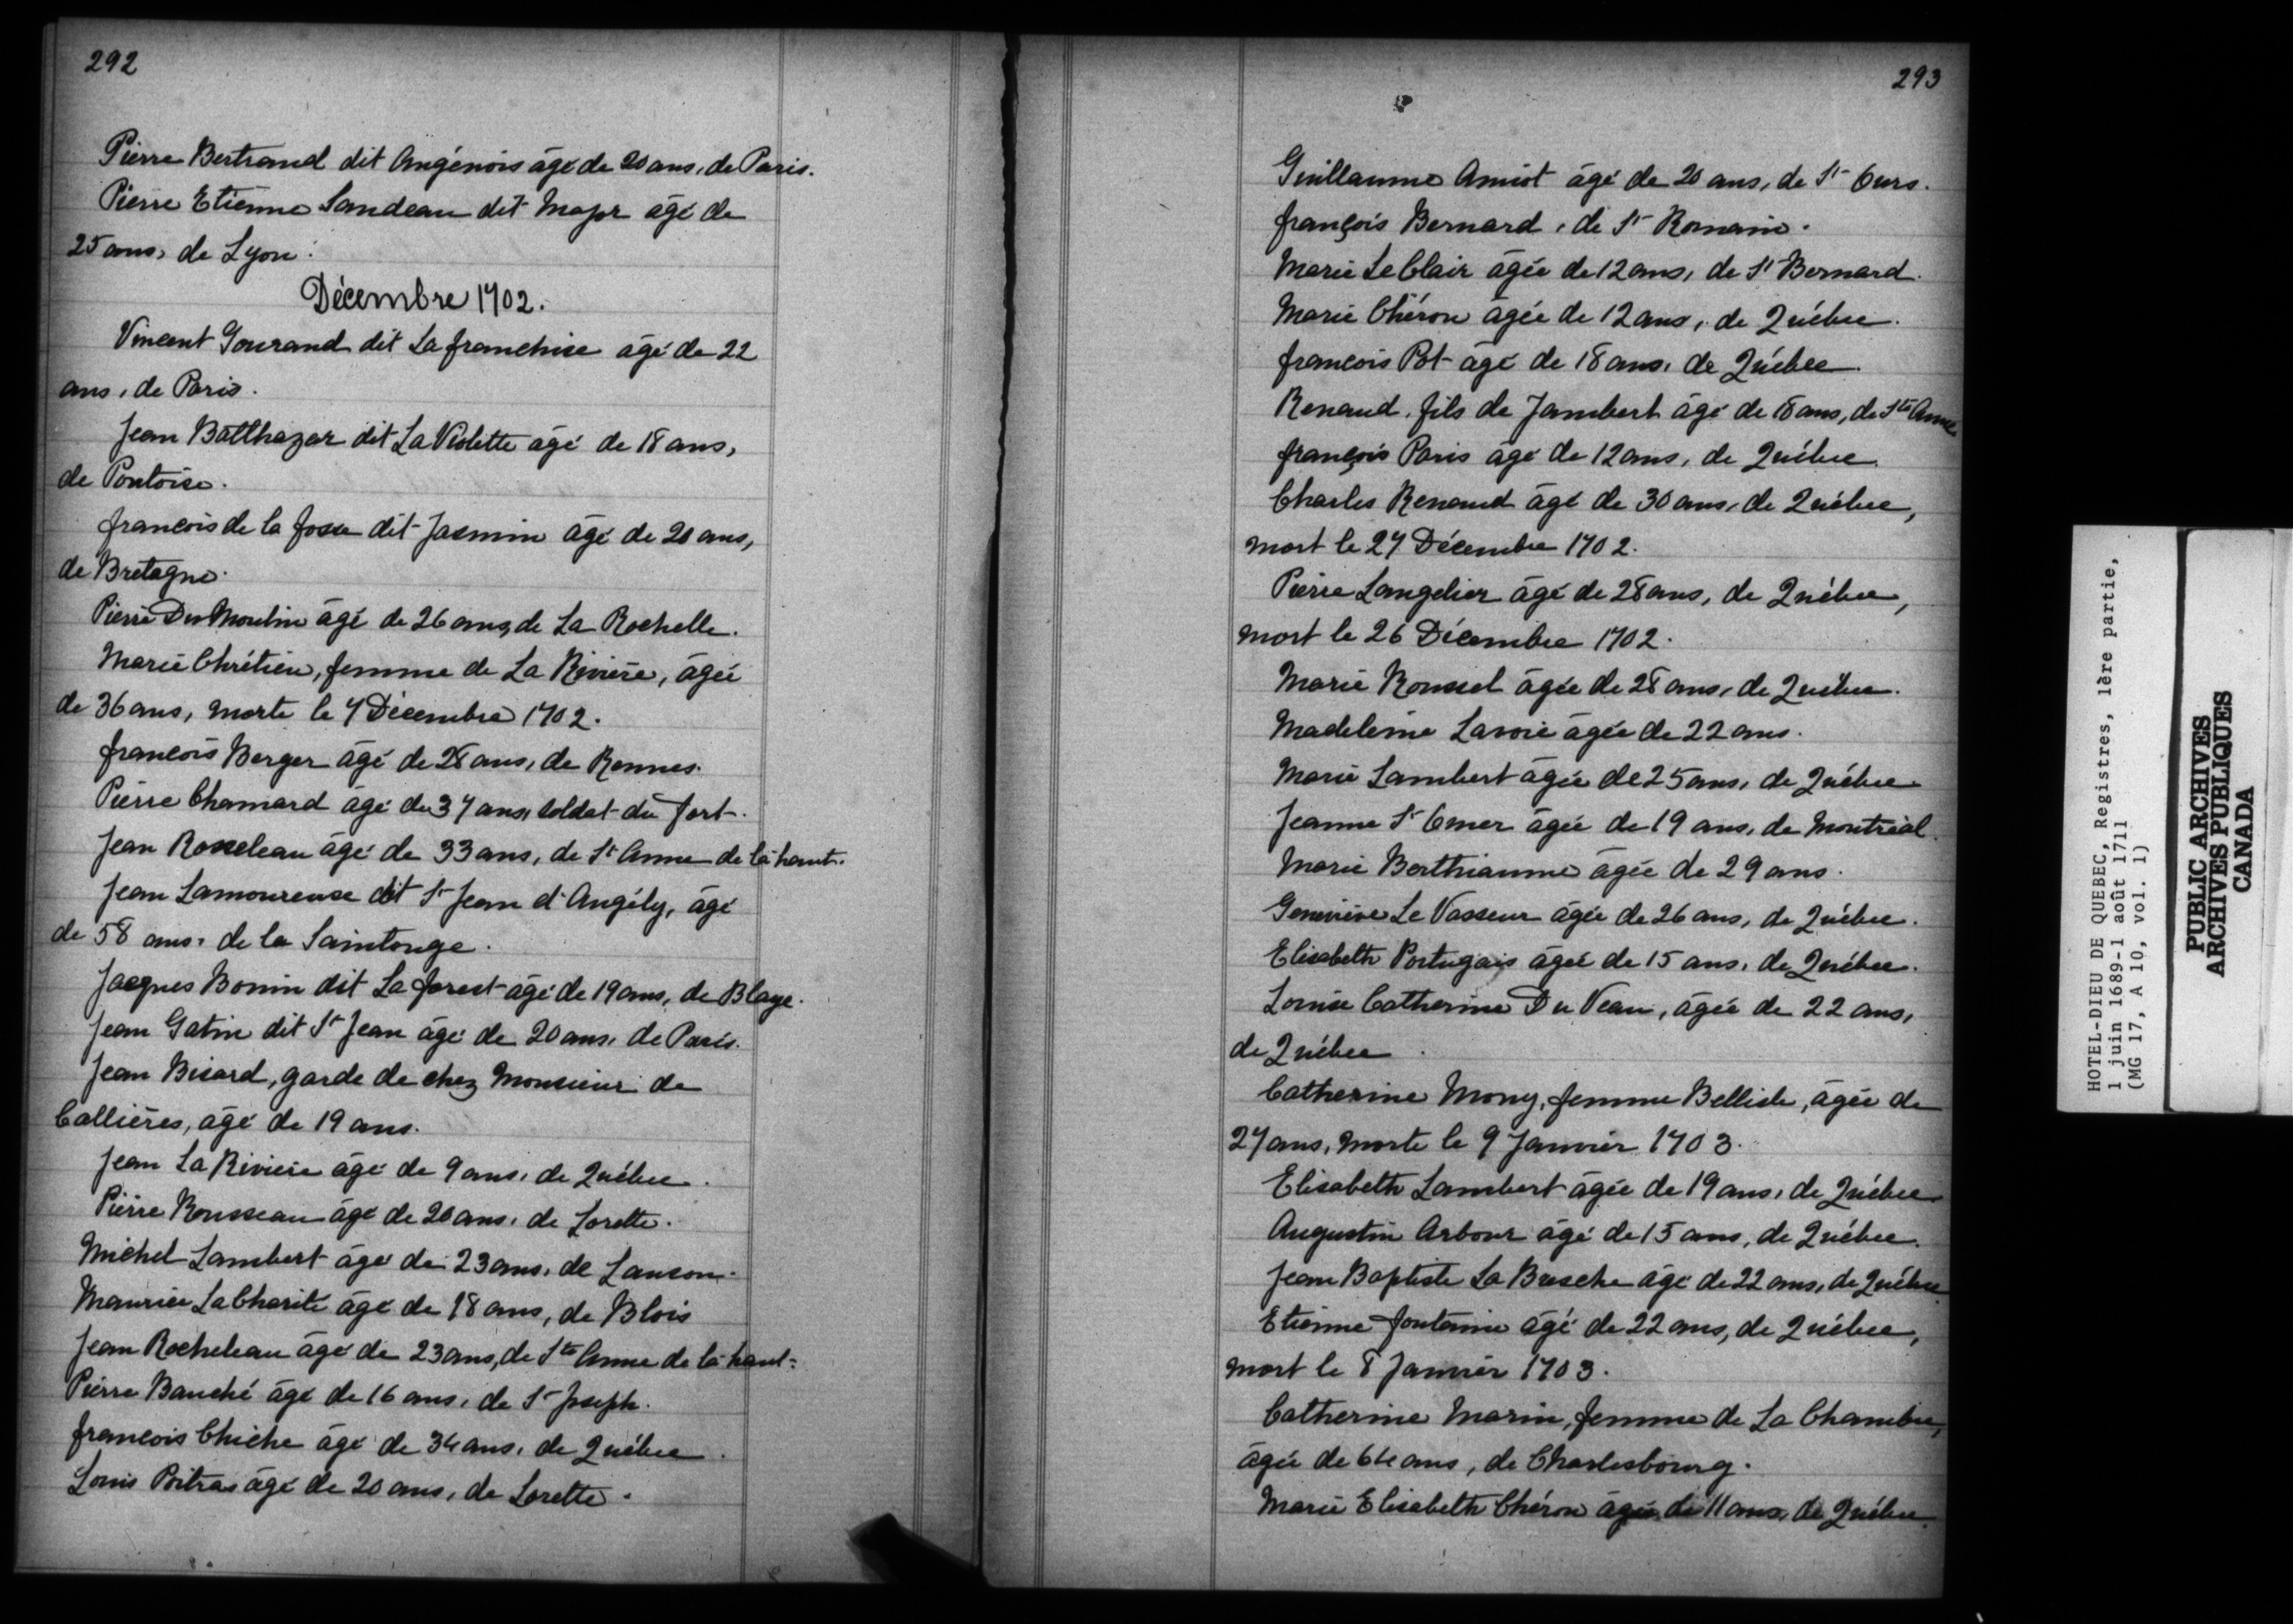 292
Pierre Bertrand dit Angénois âgé de 20 ans, de Paris.
Pierre Etienne Sandeau dit Major âgé de
25 ans, de Lyon.
Décembre 1702.
Vincent Gourand dit La franchise âgé de 22
ans, de Paris.
Jean Balthazar dit La Violette âgé de 18 ans,
de Pontoise.
françois de la fosse dit Jasmin âgé de 20 ans,
de Bretagne.
Pierre Du Moulin âgé de 26 ans, de La Rochelle.
Marie Chrétien, femme de La Rivière, âgée
de 36 ans, morte le 7 Décembre 1702.
françois Berger âgé de 28 ans, de Rennes.
Pierre Chamard âgé de 37 ans, soldat du fort.
Jean Rosseleau âgé de 33 ans, de St Anne de là-haut.
Jean Lamoureuse dit St Jean d'Angély, âgé
de 58 ans, de la Saintonge.
Jacques Bonin dit La forest âgé de 19 ans, de Blaye.
Jean Gatin dit St Jean âgé de 20 ans, de Paris.
Jean Bisard, garde de chez Monsieur de
Callières, âgé de 19 ans.
Jean La Rivière âgé de 9 ans, de Québec.
Pierre Rousseau âgé de 20 ans, de Lorette.
Michel Lambert âgé de 23 ans, de Lauson.
Maurice La Charité âgé de 18 ans, de Blois
Jean Rocheleau âgé de 23 ans, de Ste Anne de là-haut.
Pierre Bauché âgé de 16 ans, de St Joseph.
françois Chiche âgé de 34 ans, de Québec.
Louis Poitras âgé de 20 ans, de Lorette.
293
Guillaume Amiot âgé de 20 ans, de St Ours.
françois Bernard, de St Romain.
Marie Le Clair âgée de 12 ans, de St Bernard.
Marie Chéron âgée de 12 ans, de Québec.
francois Pot âgé de 18 ans, de Québec.
Renaud, fils de Jambert âgé de 18 ans, de Ste Anne
françois Paris âgé de 12 ans, de Québec.
Charles Renaud âgé de 30 ans, de Québec,
mort le 27 Décembre 1702.
Pierre Langelier âgé de 28 ans, de Québec,
mort le 26 Décembre 1702.
Marie Roussel âgée de 28 ans, de Québec.
Madeleine Lavoie âgée de 22 ans.
Marie Lambert âgée de 25 ans, de Québec
Jeanne St Omer âgée de 19 ans, de Montréal.
Marie Berthiaume âgée de 29 ans.
Geneviève Le Vasseur âgée de 26 ans, de Québec.
Elisabeth Portugais âgée de 15 ans, de Québec.
Louise Catherine Du Veau, âgée de 22 ans,
de Québec.
Catherine Mony, femme Bellisle, âgée de
27 ans, morte le 9 Janvier 1703.
Elisabeth Lambert âgée de 19 ans, de Québec
Augustin Arbour âgé de 15 ans, de Québec.
Jean Baptiste La Bresche âgé de 22 ans, de Québec
Etienne fontaine âgé de 22 ans, de Québec,
mort le 8 Janvier 1703.
Catherine Marin, femme de La Chambre,
âgée de 64 ans, de Charlesbourg.
Marie Elisabeth Chéron âgée de 11 ans, de Québec.
HOTEL-DIEU DE QUEBEC, Registres, 1ère partie,
1 juin 1689-1 août 1711
(MG 17, A 10, vol. 1)
PUBLIC ARCHIVES
ARCHIVES PUBLIQUES
CANADA